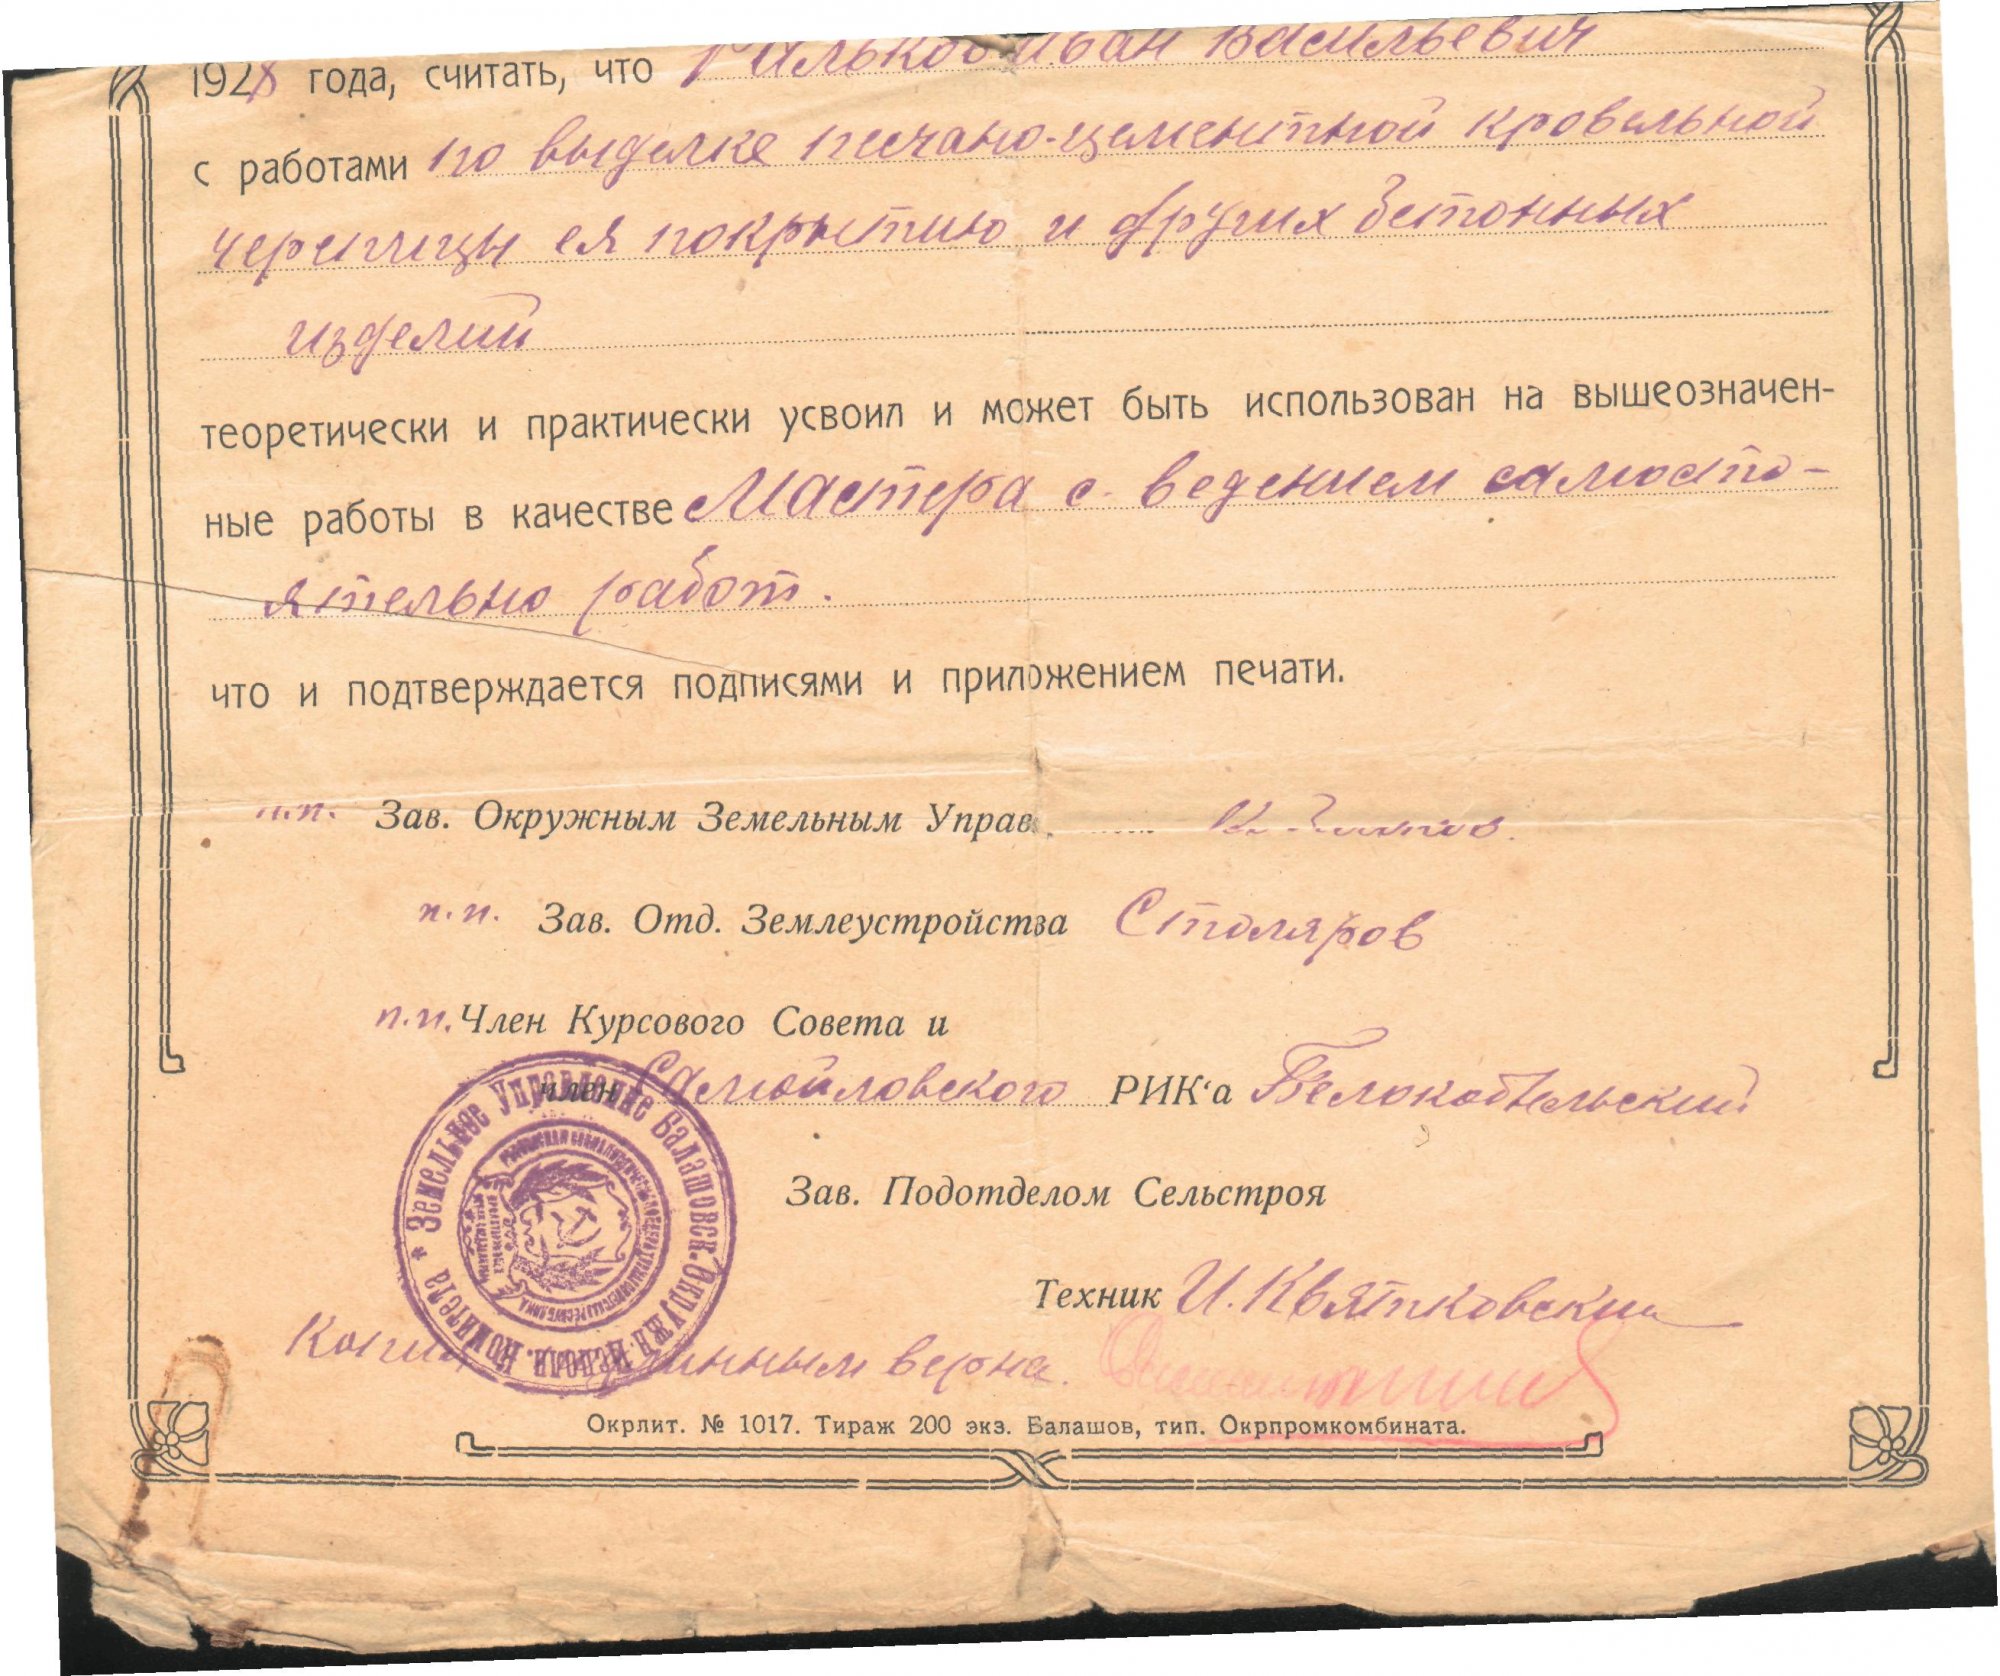 1928 года, считать, что Иван Васильевич
с работами по выделке песчано-цементной кровельной
черепицы ея покрытию и других бетонных
изделий
теоретически и практически усвоил и может быть использован на вышеозначен-
ные работы в качестве Мастера с ведением самосто-
ятельно работ.
что и подтверждается подписями и приложением печати.
п.п. Зав. Окружным Земельным Управ
п.п. Зав. Отд. Землеустройства Столяров
п.п. Член Курсового Совета и
член Самойловского РИК‘а Белокобыльский
Зав. Подотделом Сельстроя
Техник И. Квятковский
Копия верна.
Окрлит. № 1017. Тираж 200 экз. Балашов, тип. Окрпромкомбината.
* Земельное Управление Балашовск. Окружн. Исполн. Комитета